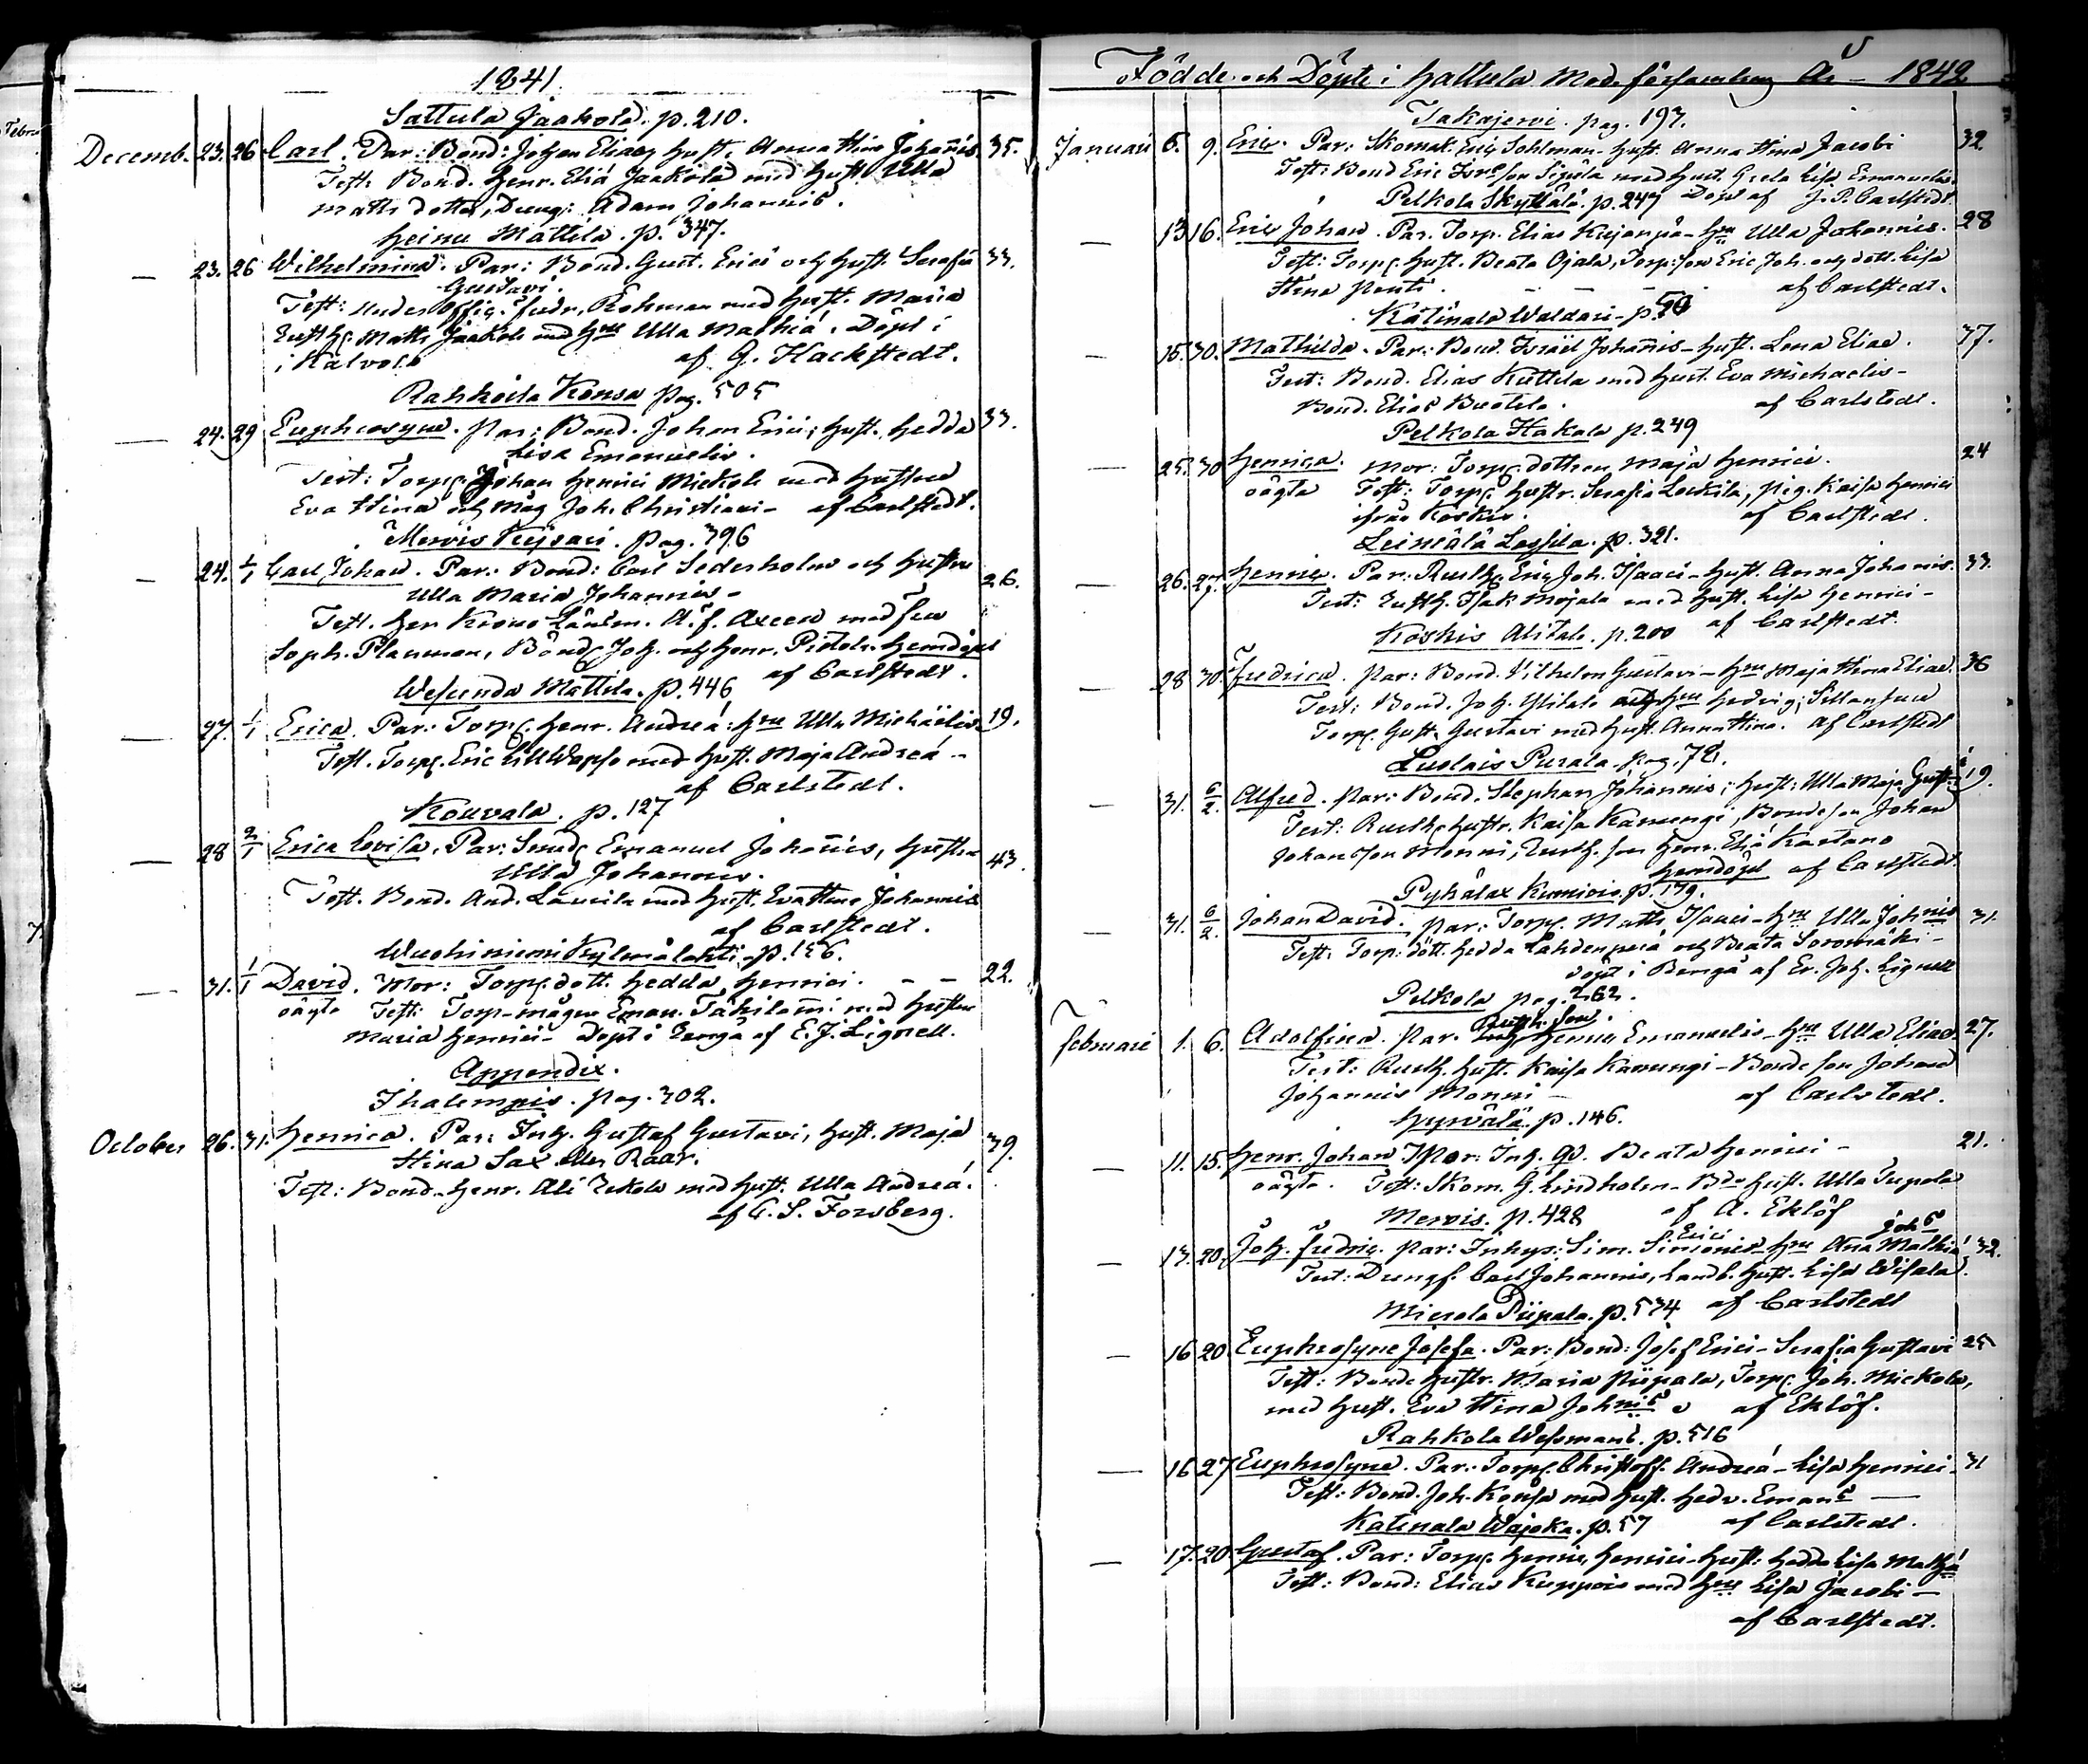 1841.
Sattula Jaakola. p. 210.
Decemb. 23. 26 Carl. Par: Bond: Johan Eliaeg hust. Anna Stina Johañis 35.
Test: Bond. Henr. Eliá Jaakola med hust. Ulla
Matts dotter, Dreng: Adam Johannis.
Heinu Mattila. p. 347.
— 23. 26 Wilhelmina. Par: Bond. Gust. Erici och hust. Serafia 33.
Gustavi.
Test: Under offic. fredr. Rohman med hust. Maria
Rusth. Matts Jaakola med hru Ulla Mathiá. Döpt i
i Kalvola af G. Hackstedt.
Rahkoila Konsa pag. 505
— 24. 29 Euphrosyne. Par: Bond. Johan Erici; hust. Hedda 33.
Lisa Emanuelis.
Test: Torp. Johan Henrici Mickola med hustru
Eva Stina och måg Joh. Christiani - af Carlstedt.
Mervis Keisari. pag. 396
— 24. 1/1 Carl Johan. Par: Bond: Carl Sederholm och hustru 26.
Ulla Maria Johannis -
Test. Herr Krono Länsm. A. f. Axeen med fru
Soph. Planman, Bönd. Joh. och Henr. Pietola. Hemdöpt
af Carlstedt.
Wesunda Mattila. p. 446
— 27. 1/1 Erica. Par: Torp. Henr. Andreá: hru Ulla Michaëlis 19.
Test. Torp. Eric Wapso med hust. Maja Andreá -
af Carlstedt.
Kouvala. p. 127
— 28 2/1 Erica Lovisa. Par: Smed Emanuel Johañis, hustru 43.
Ulla Johannis.
Test. Bond. And. Laurila med hust. Eva Stina Johannis
af Carlstedt.
Wuohiniemi Kylmälahti p. 156.
— 31. 1/1 David. Mor: Torp. dott. Hedda Henrici. - - 22.
oägta Test: Torp-mågen Eman. Tähilami med hustru
Maria Henrici - Döpt i Renga af E. J. Lignell.
Appendix.
Ihalempis. pag. 302.
October 26. 31. Henrica. Par: Inh. Gustaf Gustavi, hust. Maja 39.
Stina Sax eller Raar.
Test: Bond. Henr. Ali Eskola med hust. Ulla Andreá.
af C. S. Forsberg.
Födde och Döpte i Hattula Mod. församling År - 1842
Takajervi. pag. 193.
Januari 6. 9. Eric. Par: Skomak. Eric Sohlman - hust. Anna Stina Jacobi 32
Test: Bond Eric Ersson Sigula med hust. Greta Lisa Emanuelis.
Pelkola Skyttälä. p. 247 Döpt af J. P. Carlstedt.
— 13 16. Eric Johan. Par. Torp. Elias Kujanpä - hru Ulla Johannis. 28
Test: Torp. hust. Beata Ojala, Torp: son Eric Joh. och dott. Lisa
Stina Penti. - - - - af Carlstedt.
Katinala Waldari - p. 50
— 15. 30. Mathilda. Par: Bond. Israël Johañis - hust. Lena Eliae. 37.
Test: Bond. Elias Küttila med hust. Eva Michaelis -
Bond. Elias Buotila. af Carlstedt.
Pelkola Hakala p. 249
— 25. 30 Henrica. Mor: Torp. dottren Maja Henrici. 24
oägta Test: Torp. hustr. Serafia Leckila, pig. Kaisa Henrici
ifrån Koskis. af Carlstedt.
Leinïälä Lassila. p. 321.
— 26. 27. Henric. Par: Rusth. Eric Joh. Isaaci - hust. Anna Johanis. 33.
Test: Rusth. Isak Mojala med hust. Lisa Henrici -
Koskis Alitalo. p. 200 af Carlstedt.
— 28 30. Fredrica. Par: Bond. Vilhelm Gustavi - hru Maja Stina Eliae. 36
Test: Bond. Joh. Ylitalo och hru Hedvig; Sillan
Torp. Gust. Gustavi med hust. Anna Stina. af Carlstedt
Luolais Purala. pag. 72.
— 31. 6/2. Alfred. Par: Bond. Stephan Johannis; hust: Ulla Maja Gust. 19.
Test: Rusth. hustr. Kaisa Karrungi, Bondeson Johan
Johansson Monni, Rusth. son Henr. Eliá Kaartano
hemdöpt af Carlstedt.
Pyhälax Kumiois. p. 179.
— 31. 6/2. Johan David. Par: Torp. Matts Isaaci - hru Ulla Johnis 31.
Test. Torp: dött. Hedda Lähdenperä och Beata Soromäki -
döpt i Renga af Er. Joh. Lignell
Pelkola pag. 262.
Rusth. son.
Februari 1. 6. Adolfina. Par. Henric Emanuelis - hru Ulla Eliae. 27.
Test: Rusth. hust. Kaisa Karrungi - Bonde son Johan
Johannis Monni - af Carlstedt.
Hyrvälä. p. 146.
— 11. 15. Henr. Johan Mor: Inh. Beata Henrici - 21.
oägta. Test: Skom. G. Lindholm - Bde hust. Ulla Tupala
Mervis. p. 428 af A. Eklöf
Erici Joh
— 13. 20. Joh. Fredric. Par: Inhys: Sim. Simonis - hru Ana Mathiá 32.
Test: Drengf. Carl Johannis, Landb. hust. Lisa Wisala.
Mierola Piipala. p. 534 af Carlstedt
— 16 20. Euphrosyne Josefa. Par: Bond: Josef Erici - Serafia Gustavi 25
Test: Bonde hustr. Maria Piipala, Torp. Joh. Mickola,
med hust. Eva Stina Johnis af Eklöf.
Rahkola Wessmans. p. 516
— 16 27 Euphrosyne. Par: Torp. Christoff. Andreá - Lisa Henrici. 31
Test: Bond. Joh. Konsa med hust. Hedv. Emans —
Katinala Wajoka. p. 57 af Carlstedt.
— 17. 20. Gustaf. Par: Torp. Henric Henrici - hust: Hedda Lisa Mathiá
Test: Bond: Elias Kuppois med hru Lisa Jacobi -
af Carlstedt.